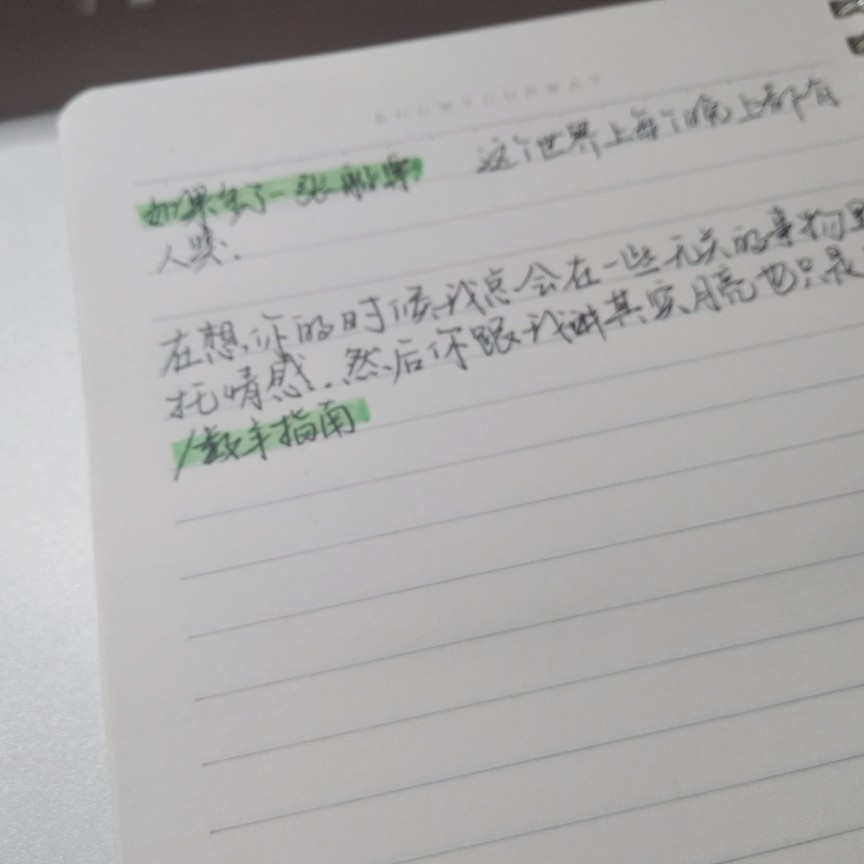 KNOWYOURWAY
如果多了一张船票 这个世界上每个晚上都有
人哭.
在想你的时候,我总会在一些无关的事物里
托情感..然后你跟我讲其实月亮也只是
指南